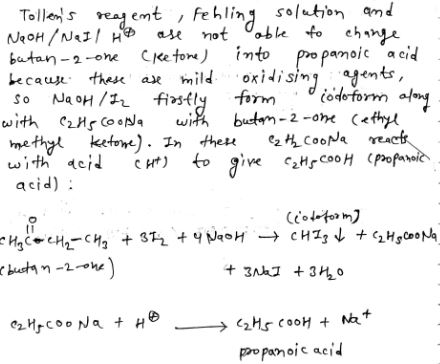 Tollen's reagent, Fehling solution and
NaOH/NaI/H⊕ are not able to change
butan-2-one (ketone) into propanoic acid
because these are mild oxidising agents,
so NaOH/I2 firstly form iodoform along
with C2H5COONa with butan-2-one (ethyl
methyl ketone). In these C2H5COONa reacts
with acid (H+) to give C2H5COOH (propanoic
acid):
O
CH3C-CH2-CH3 + 3I2 + 4NaOH → CHI3↓ + C2H5COONa
(iodoform)
(butan-2-one) + 3NaI + 3H2O
C2H5COONa + H⊕ → C2H5COOH + Na+
propanoic acid